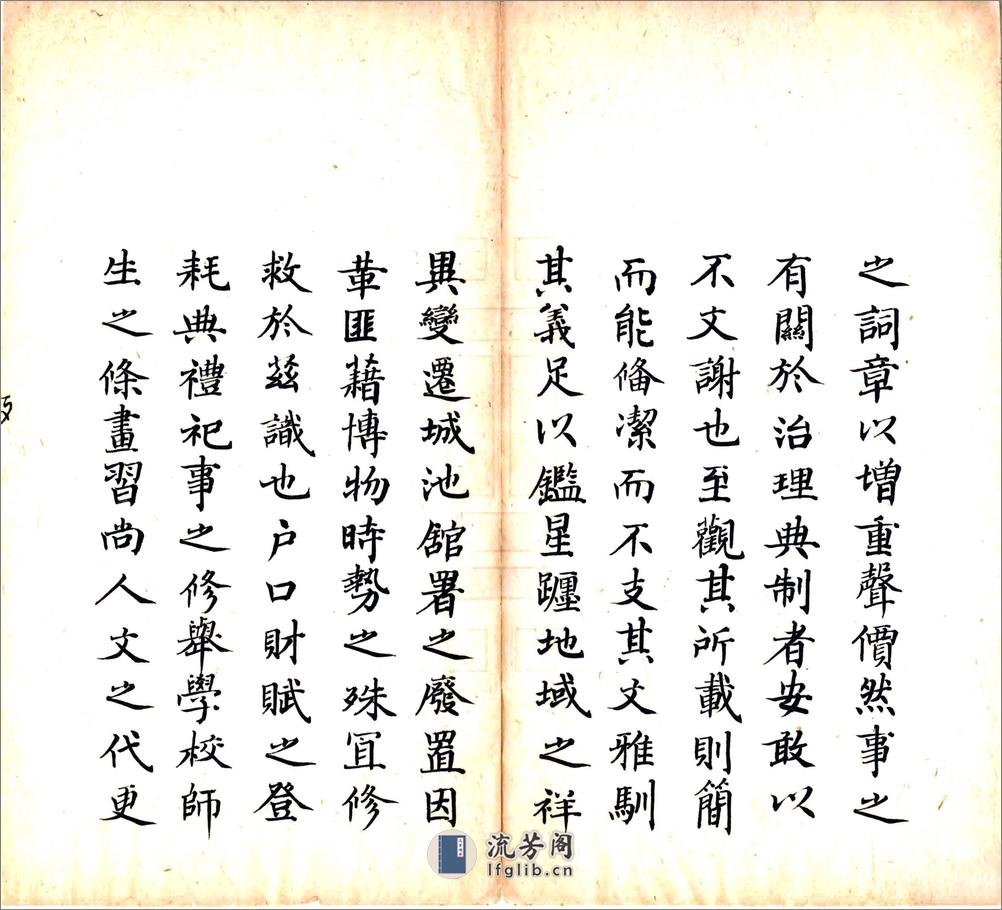 之詞章以增重聲價然事之
有關於治理典制者安敢以
不文謝也至觀其所載則簡
而能備潔而不支其文雅馴
其義足以鑑星躔地域之祥
異變遷城池舘署之廢置因
革匪藉博物時勢之殊冝修
救於茲識也户口財賦之登
耗典禮祀事之修舉學校師
生之條畫習尚人文之代更
流芳阁
lfglib.cn